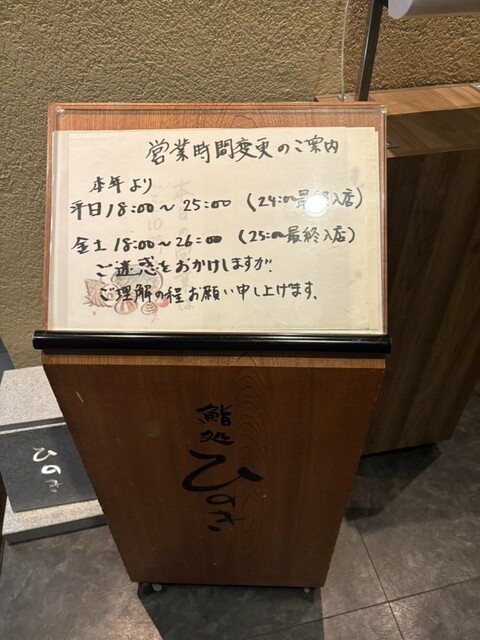 営業時間変更のご案内
本年より
平日18:00～25:00 (24:00最終入店)
金土18:00～26:00 (25:00最終入店)
ご迷惑をおかけしますが、
ご理解の程お願い申し上げます。
鮨
処
ひのき
ひのき